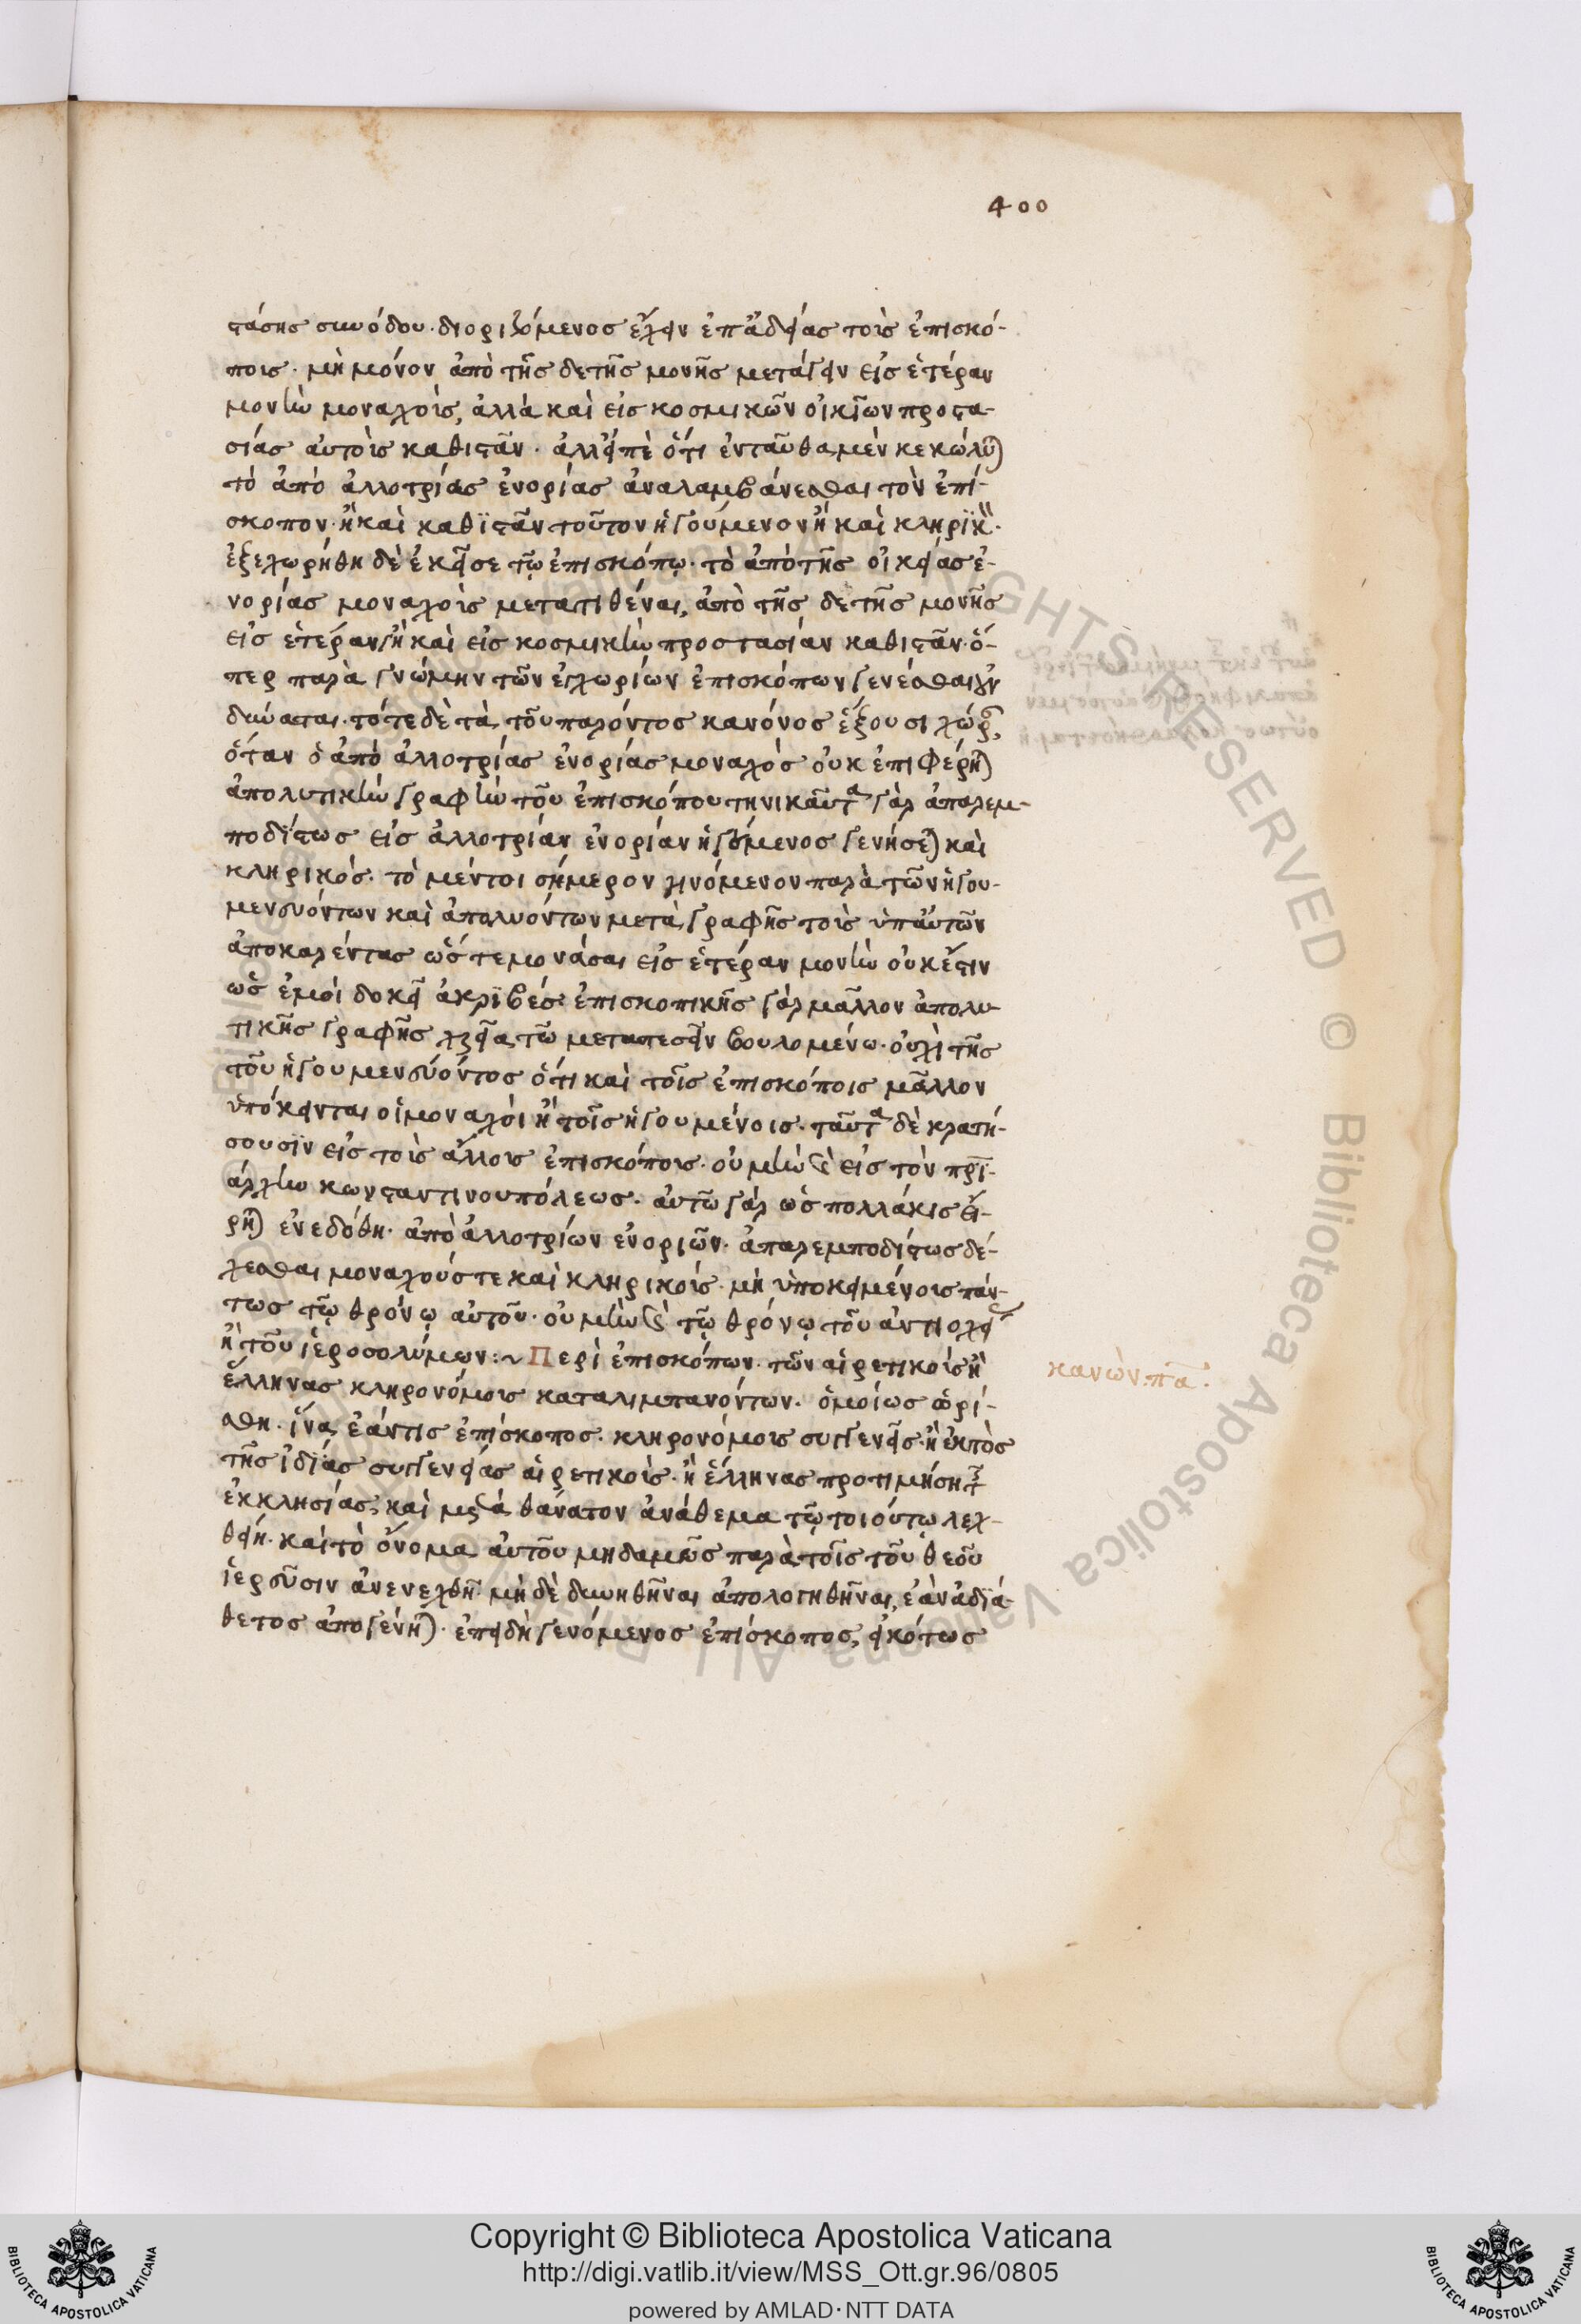 400
στάσης συνόδου· διοριζόμενος ἔχειν ἐπ' ἀδείας τοὺς ἐπισκό-
πους· μὴ μόνον ἀπὸ τῆσδε τῆς μονῆς μετάγειν εἰς ἑτέραν
μονὴν μοναχοὺς, ἀλλὰ καὶ εἰς κοσμικῶν οἰκιῶν προστα-
σίας αὐτοὺς καθιστᾶν· ἀλλ' εἰπὲ ὅτι ἐνταῦθα μὲν κεκώλυται
τὸ ἀπὸ ἀλλοτρίας ἐνορίας ἀναλαμβάνεσθαι τὸν ἐπί-
σκοπον· ἢ καὶ καθϊστᾶν τοῦτον ἡγούμενον ἢ καὶ κληρϊκὸν·
ἐξεχωρήθη δὲ ἐκεῖσε τῷ ἐπισκόπῳ· τὸ ἀπὸ τῆς οἰκείας ἐ-
νορίας μοναχοὺς μετατιθέναι, ἀπὸ τῆς δε τῆς μονῆς
εἰς ἑτέραν, ἢ καὶ εἰς κοσμικὴν προστασίαν καθιστᾶν· ὅ-
περ παρὰ γνώμην τῶν ἐγχωρίων ἐπισκόπων γενέσθαι οὐ
δύναται· τότε δὲ τὰ τοῦ παρόντος κανόνος ἕξουσι χώραν,
ὅταν ὁ ἀπὸ ἀλλοτρίας ἐνορίας μοναχὸς οὐκ ἐπιφέρηται
ἀπολυτικὴν γραφὴν τοῦ ἐπισκόπου τηνικαῦτα γὰρ ἀπαρεμ-
ποδίστως εἰς ἀλλοτρίαν ἐνορίαν ἡγούμενος γενήσεται καὶ
κληρικός· τὸ μέντοι σήμερον γινόμενον παρὰ τῶν ἡγου-
μενευόντων καὶ ἀπολυόντων μετὰ γραφῆς τοὺς ὑπ' αὐτῶν
ἀποκαρέντας ὥστε μονάσαι εἰς ἑτέραν μονὴν οὐκ ἔστιν
ὡς ἐμοὶ δοκεῖ ἀκριβές· ἐπισκοπικῆς γὰρ μᾶλλον ἀπολυ-
τικῆς γραφῆς χρεία τῷ μεταπεσεῖν βουλομένω· οὐχὶ τῆς
τοῦ ἡγουμενεύοντος ὅτι καὶ τοῖς ἐπισκόποις μᾶλλον
ὑπόκεινται οἱ μοναχοὶ ἢ τοῖς ἡγουμένοις· ταῦτα δὲ κρατή-
σουσϊν εἰς τοὺς ἄλλους ἐπισκόπους· οὐ μὴν δὲ εἰς τὸν πρι-
άρχην κωνσταντινουπόλεως· αὐτῶ γὰρ ὡς πολλάκις εἴ-
ρηται ἐνεδόθη· ἀπὸ ἀλλοτρίων ἐνοριῶν· ἀπαρεμποδίστως δέ-
χεσθαι μοναχούς τε καὶ κληρικοὺς· μὴ ὑποκειμένους πάν-
τως τῷ θρόνῳ αὐτοῦ· οὐ μὴν δὲ τῷ θρόνῳ τοῦ ἀντιοχείας
ἢ τοῦ ἱεροσολύμων:~ Περὶ ἐπισκόπων· τῶν αἱρετικοὺς ἢ
κανὼν πα.
ἕλληνας κληρονόμους καταλιμπανόντων· ὁμοίως ὡρί-
σθη· ἵνα ἐάν τις ἐπίσκοπος· κληρονόμους συγγενεῖς· ἢ ἐκτὸς
τῆς ἰδίας συγγενείας αἱρετικοὺς· ἢ ἕλληνας προτιμήση τῆς
ἐκκλησίας, καὶ μετὰ θάνατον ἀνάθεμα τῷ τοιούτῳ λεχ-
θείη· καὶ τὸ ὄνομα αὐτοῦ μηδαμῶς παρὰ τοῖς τοῦ θεοῦ
ἱερεῦσιν ἀνενεχθῆ· μὴ δὲ δυνηθῆναι ἀπολογηθῆναι, ἐὰν ἀδϊά-
θετος ἀπογένηται· ἐπειδὴ γενόμενος ἐπίσκοπος, εἰκότως
Copyright © Biblioteca Apostolica Vaticana
http://digi.vatlib.it/view/MSS_Ott.gr.96/0805
powered by AMLAD·NTT DATA